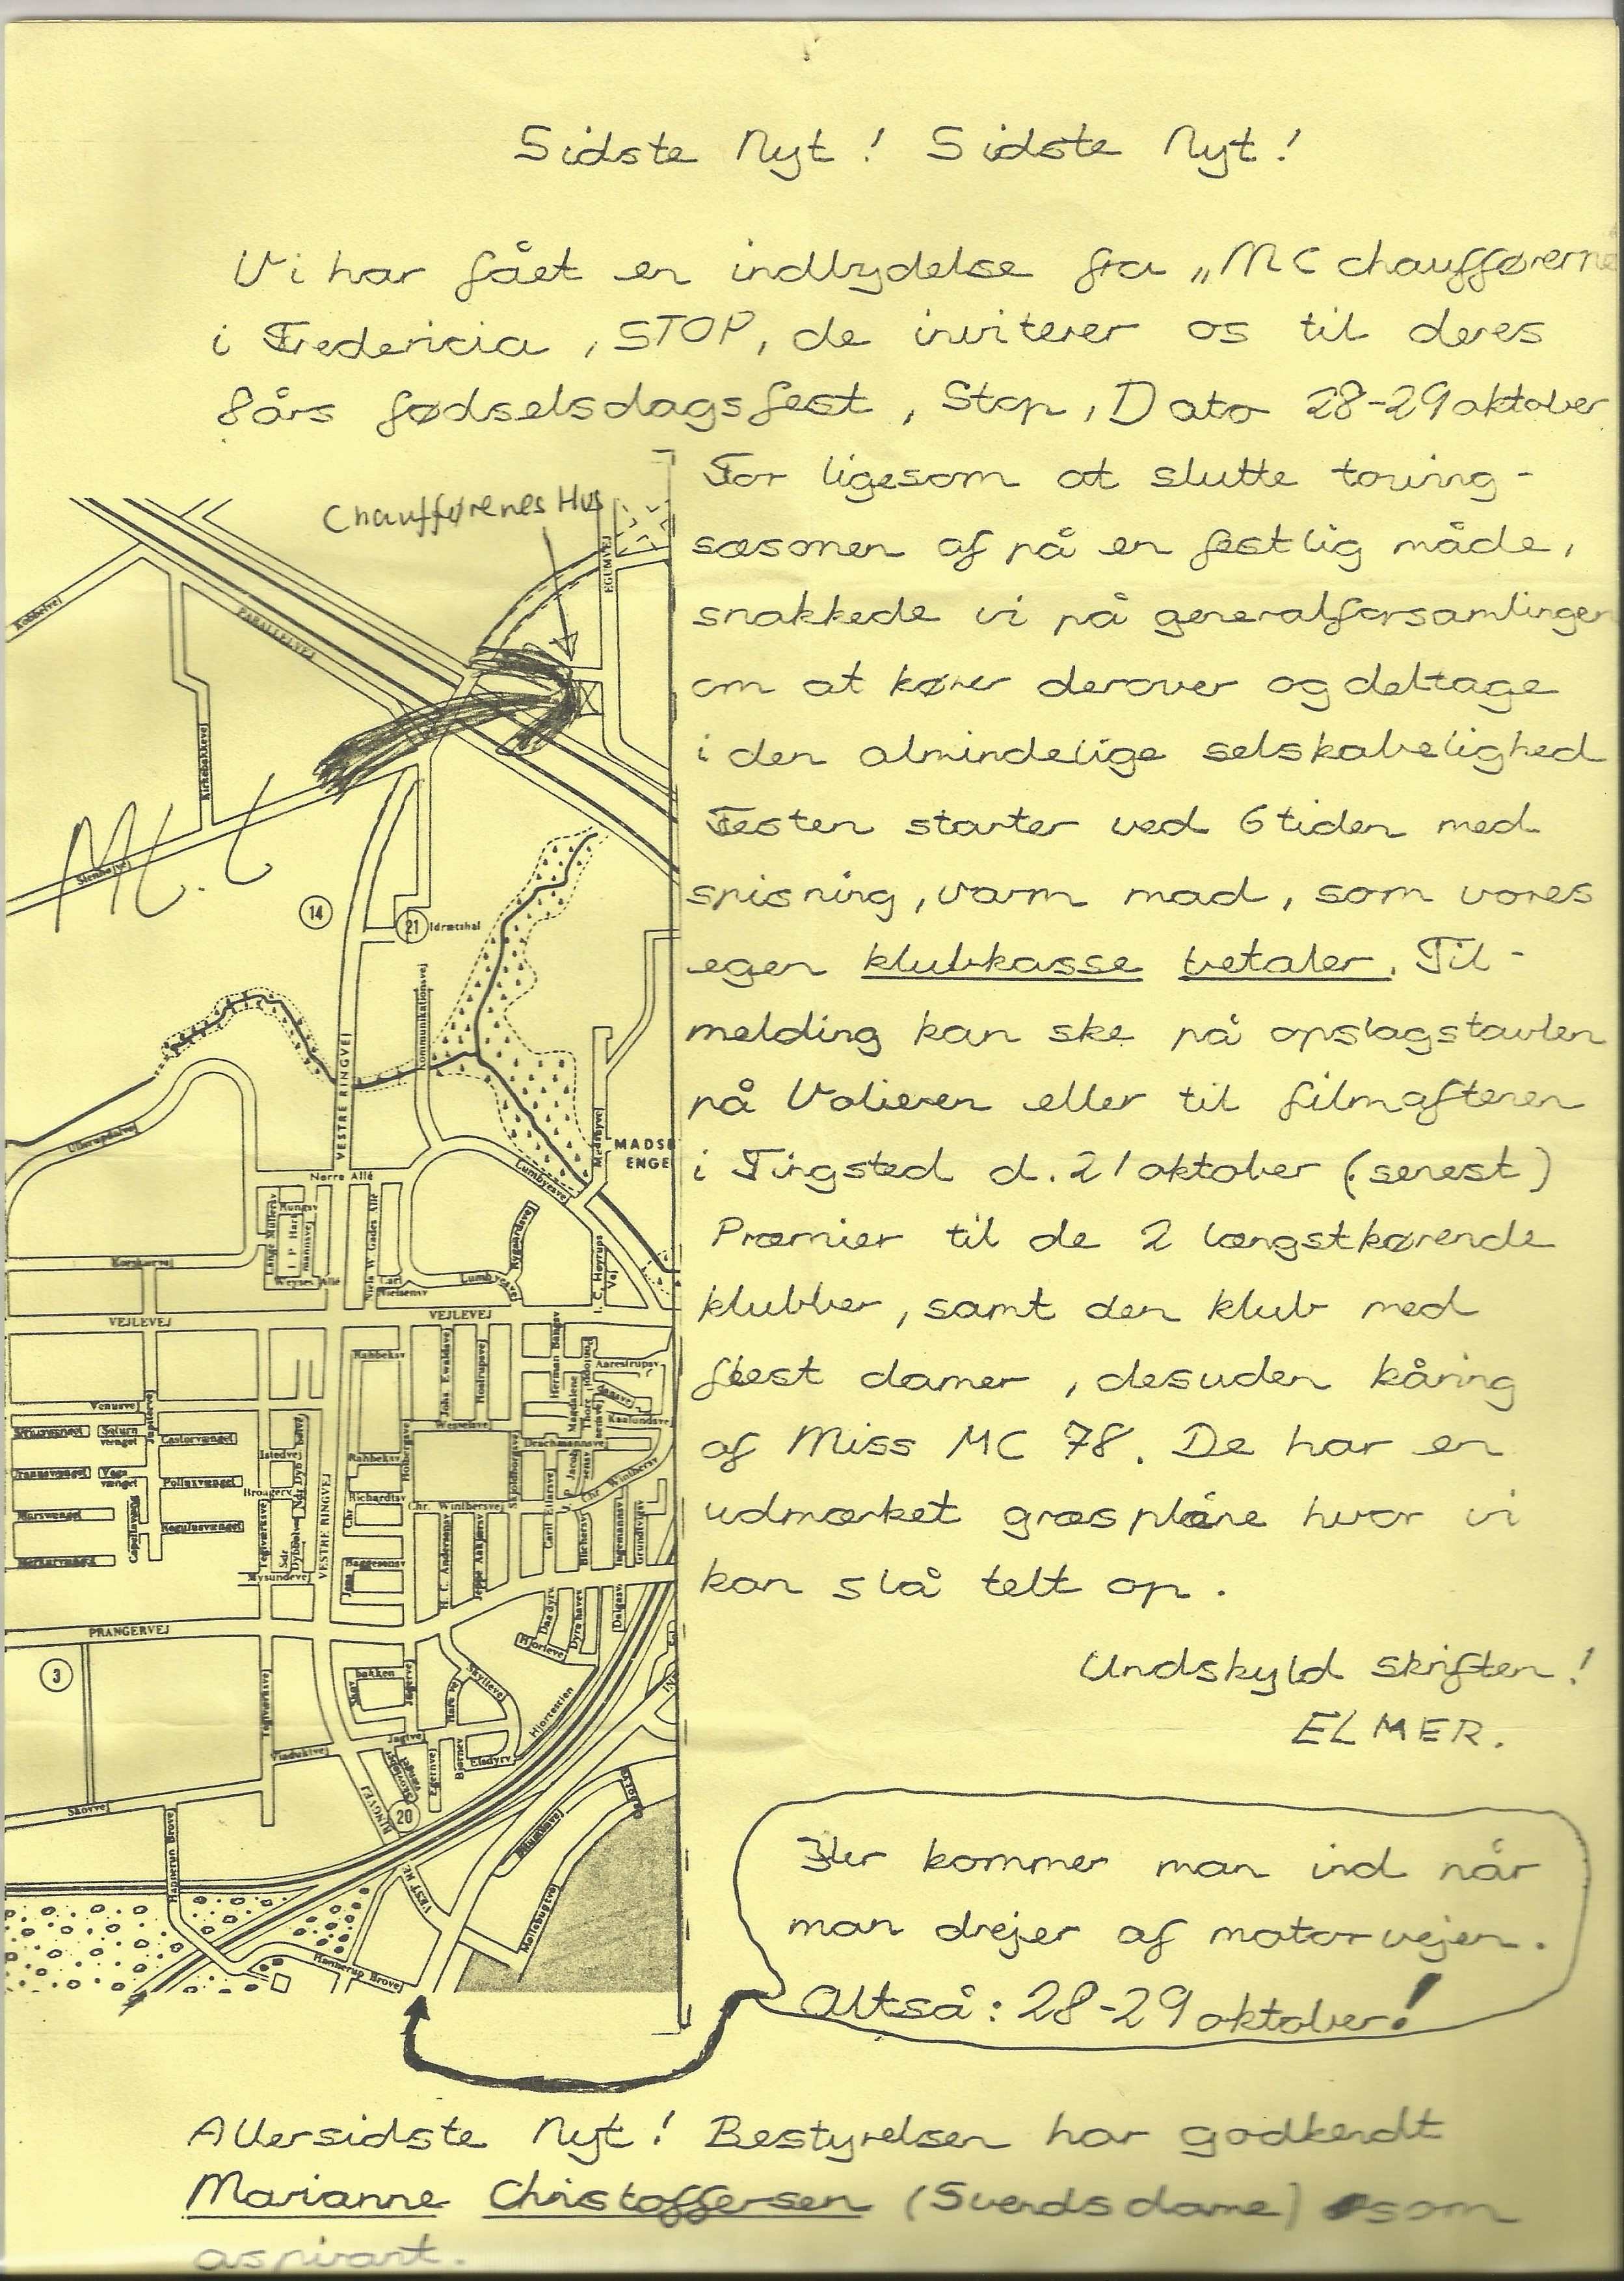 Sidste Nyt! Sidste Nyt!
Vi har fået en indbydelse fra „MC chaufførerne
i Fredericia, STOP, de inviterer os til deres
8års fødselsdagsfest, Stop, Dato 28-29 oktober
For ligesom at slutte touring-
sæsonen af på en festlig måde,
snakkede vi på generalforsamlingen
om at kører derover og deltage
i den almindelige selskabelighed
Festen starter ved 6 tiden med
spisning, varm mad, som vores
egen klubkasse betaler. Til-
melding kan ske på opslagstavlen
på Volieren eller til filmaftenen
i Tingsted d. 21 oktober (senest)
Præmier til de 2 længstkørende
klubber, samt den klub med
flest damer, desuden kåring
af Miss MC 78. De har en
udmærket græsplæne hvor vi
kan slå telt op.
Undskyld skriften!
ELMER.
Her kommer man ind når
man drejer af motorvejen.
Altså: 28-29 oktober!
Allersidste Nyt! Bestyrelsen har godkendt
Marianne Christoffersen (Svends dame) som
aspirant.
Chaufførenes Hus
EGUMVEJ
Kobbelvej
PARALLELVEJ
Kirkebakkevej
M.C
Stenhøjvej
14
21 Idrætshal
Kommunikationsvej
VESTRE RINGVEJ
Ullerupdalvej
Madsbyvej
MADSB
ENGE
Nørre Allé
Lumbyesvej
Nygaardsvej
Rungsv
Lange Müllersv
I P Hart
mannsvej
Weyses Allé
Niels W Gades Allé
Carl
Nielsensv
Lumbyesv
I. C. Høyrups
Vej
Korskærvej
VEJLEVEJ
VEJLEVEJ
Rahbeksv
Johs Ewaldsvej
Hostrupsvej
Herman Bangsv
Aarestrupsv
Venusvej
Jupitervej
Wesselsvej
Kaalundsvej
Drachmannsvej
Saturn
vænget
Castorvænget
Istedvej
Rahbeksv
Holbergsvej
Uranusvænget
Vega
vænget
Polluxvænget
Richardtsv
Chr. Winthersvej
Chr Winthersv
Marsvænget
Capellavænget
Regulusvænget
Teglværksvej
Sdr
VESTRE RINGVEJ
Baggesensv
H. C. Andersensv
Jeppe Aakjærsv
Carl Ewaldsvej
Blichersv
Ingemannsv
Grundtvigsv
Merkurvænget
Mysundevej
PRANGERVEJ
3
Hjortevej
Dyrehavev
Dalgasv
Teglværksvej
bakken
Jægervej
Harevej
Skyttevej
Hjortestien
Viaduktvej
Jagtvej
Egernvej
Bjørnev
Elsdyrv
RINGVEJ
20
Skovvej
Hannerup Brovej
VESTRE
Mallebugtvej
Hannerup Brovej